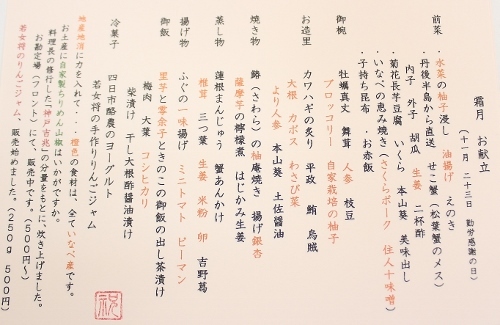 霜月　お献立
（十一月　二十三日　勤労感謝の日）
前菜　・水菜の柚子浸し　油揚げ　えのき
・丹後半島から直送　せこ蟹（松葉蟹のメス）
内子　外子　胡瓜　生姜　二杯酢
・菊花長芋豆腐　いくら　本山葵　美味出し
・いなべの恵み焼き（さくらポーク　住人十味噌）
・子持ち昆布　・お赤飯
御椀　牡蠣真丈　舞茸　人参　枝豆
ブロッコリー　自家栽培の柚子
お造里　カワハギの炙り　平政　鮪　烏賊
大根　カボス　わさび菜
より人参　本山葵　土佐醤油
焼き物　鰆（さわら）の柚庵焼き　揚げ銀杏
薩摩芋の檸檬煮　はじかみ生姜
蒸し物　蓮根まんじゅう　蟹あんかけ
椎茸　三つ葉　生姜　米粉　卵　吉野葛
揚げ物　ふぐの一味揚げ　ミニトマト　ピーマン
御飯　里芋と零余子ときのこ御飯の出し茶漬け
梅肉　大葉　コシヒカリ
柴漬け　干し大根酢醤油漬け
冷菓子　四日市酪農のヨーグルト
若女将の手作りりんごジャム
地産地消に力を入れて・・・橙色の食材は、全ていなべ産です。
お土産に自家製ちりめん山椒はいかがですか。
料理長の修行した「神戸吉兆」の分量をもとに、炊き上げました。
お勘定場（フロント）にて、販売中です。（500円～）
若女将のりんごジャム、販売始めました。（250g　500円）